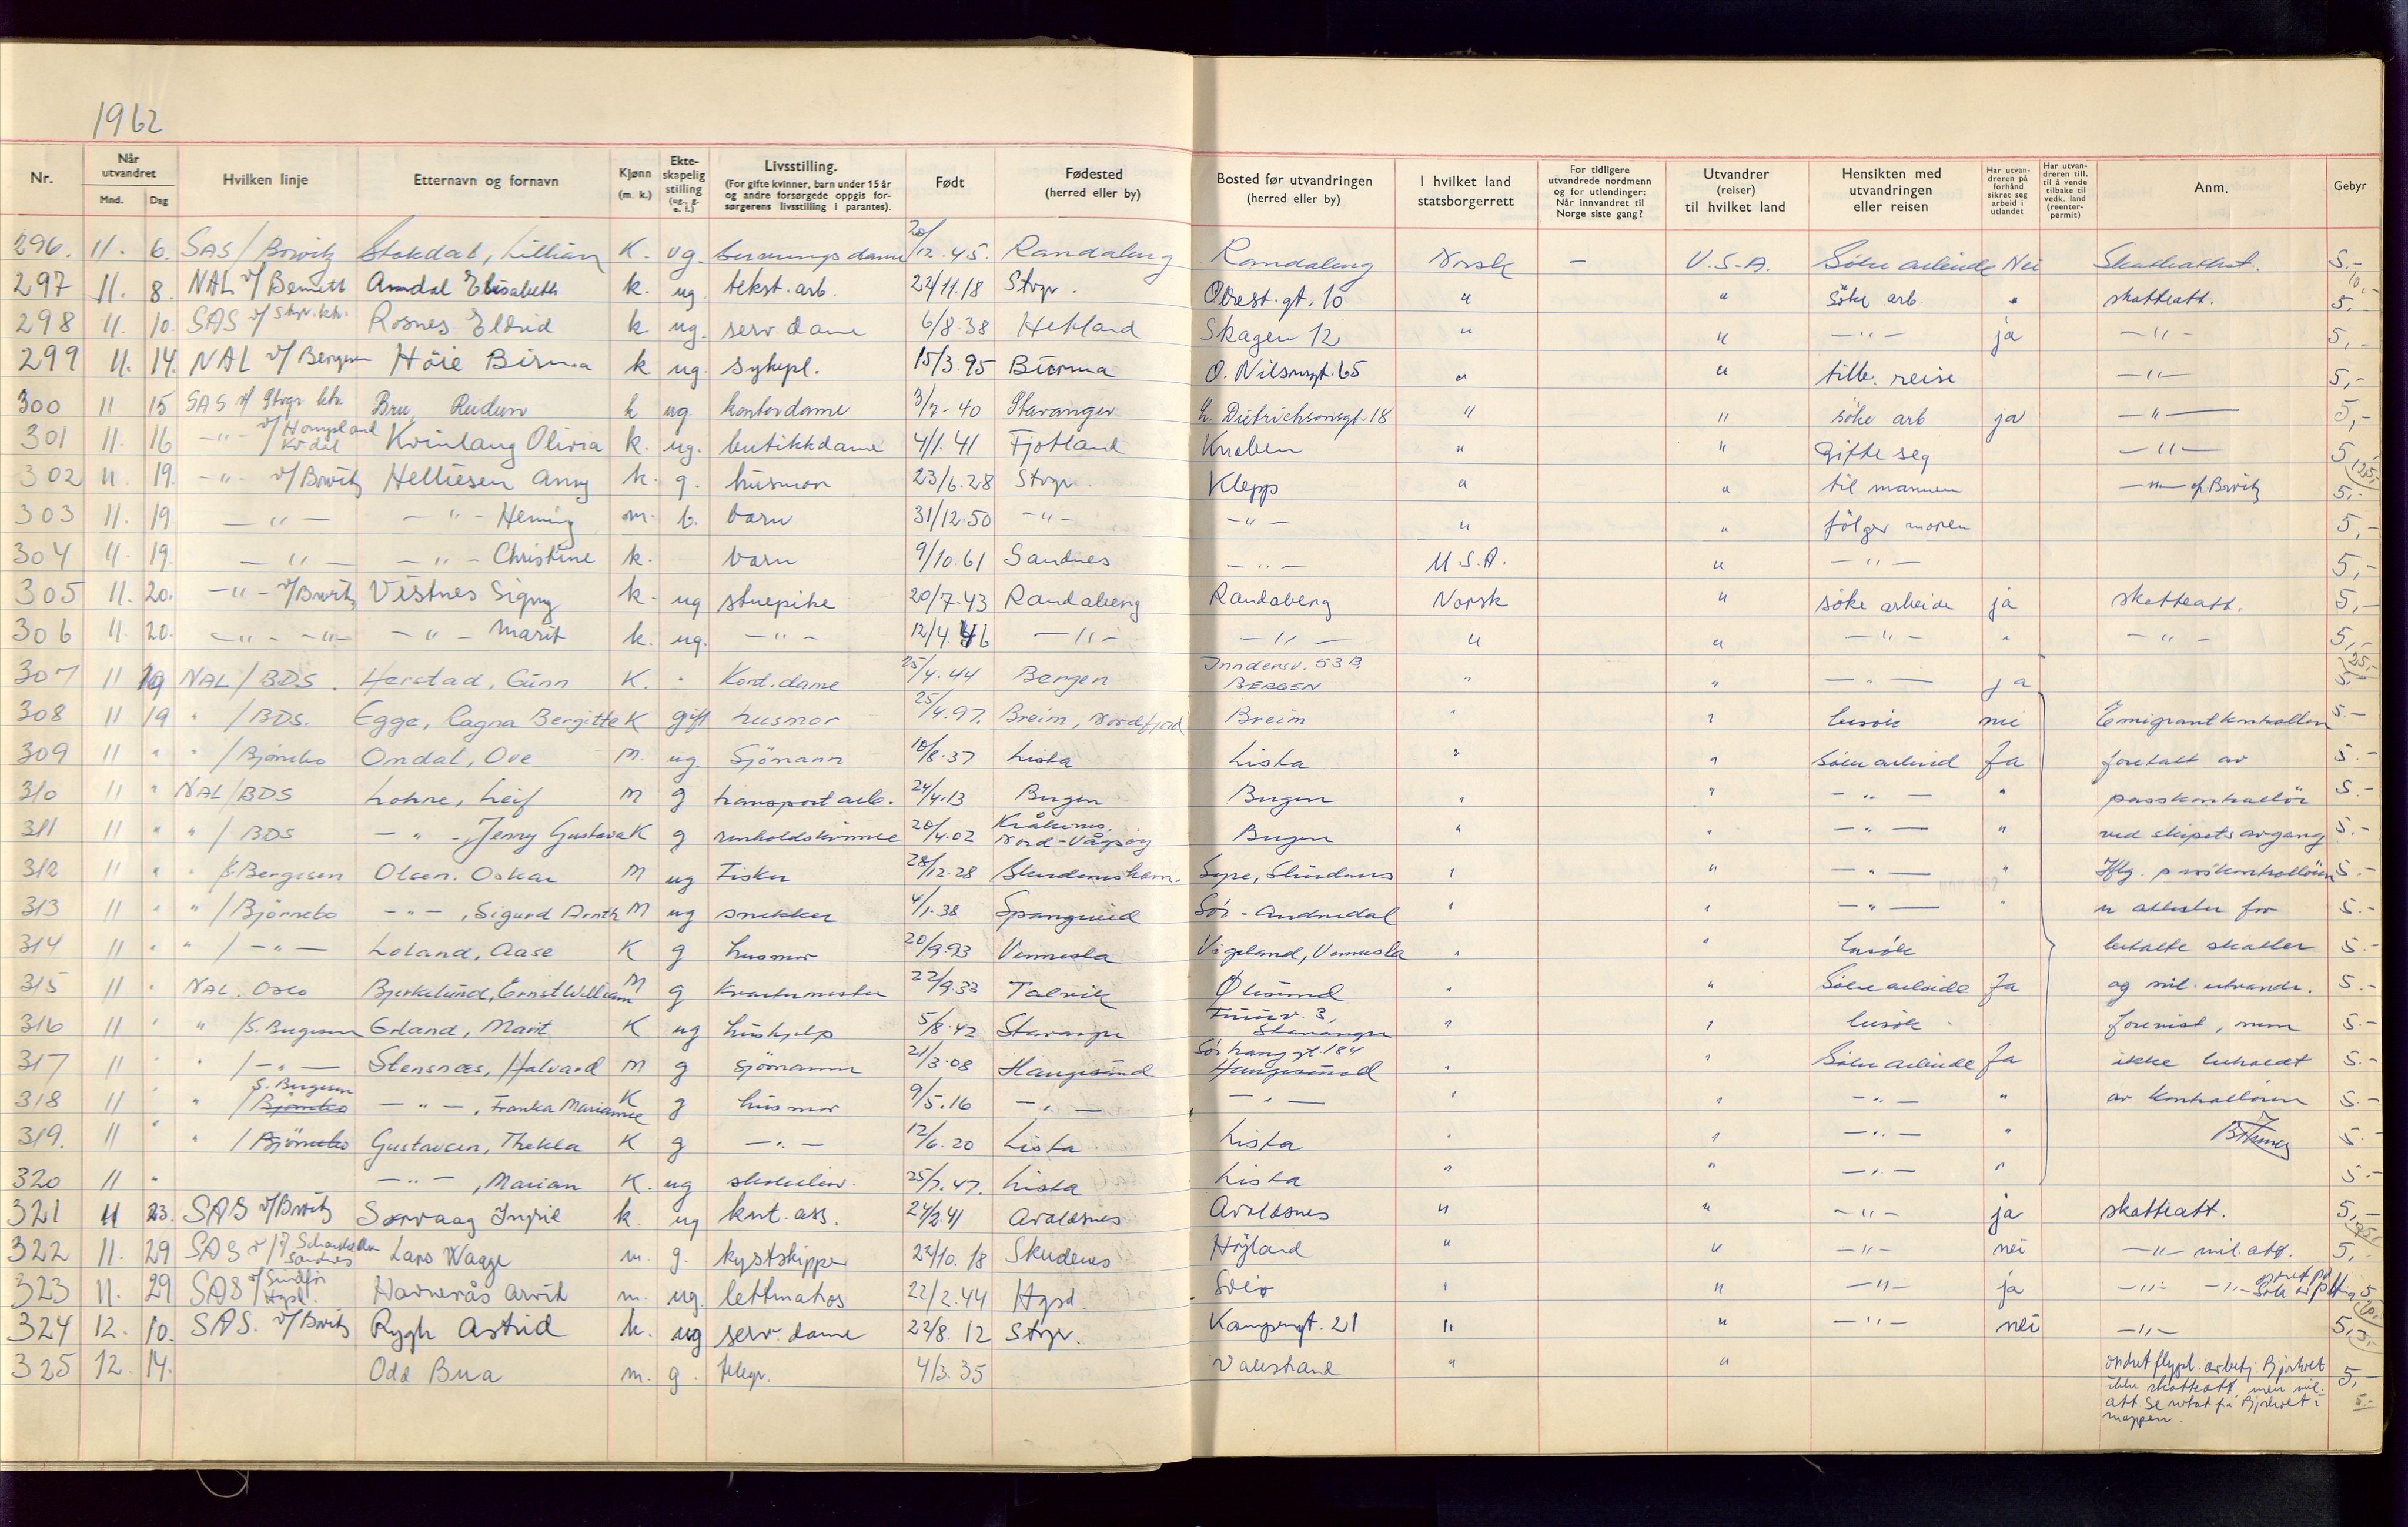 1962
Nr. Når utvandret Mnd. Dag Hvilken linje Etternavn og fornavn Kjønn (m. k.) Ekteskapelig stilling (ug., g. e. f.) Livsstilling. (For gifte kvinner, barn under 15 år og andre forsørgede oppgis forsørgerens livsstilling i parantes). Født Fødested (herred eller by) Bosted før utvandringen (herred eller by) I hvilket land statsborgerrett For tidligere utvandrede nordmenn og for utlendinger: Når innvandret til Norge siste gang? Utvandrer (reiser) til hvilket land Hensikten med utvandringen eller reisen Har utvandreren på forhånd sikret seg arbeid i utlandet Har utvandreren till. til å vende tilbake til vedk. land (reenterpermit) Anm. Gebyr
296. 11. 6. SAS/Bowitz Stokdal, Lillian K. ug. serverings dame 20/12.45. Randaberg Randaberg Norsk — U.S.A. Söke arbeide Nei Skatteattest. 5.-
297 11. 8. NAL v/Bennett Amdal Elisabeth k. ug. tekst. arb. 22/11.18 Stvgr. gt. 10 " " söke arb. " skatteatt. 5,-
298 11. 10. SAS v/Stvgr. ktr. Rosnes Eldrid k ug. serv. dame 6/8.38 Hetland Skagen 12 " " -"- ja -"- 5,-
299 11. 14. NAL v/Bergesen Höie Birma k. ug. sykepl. 15/3.95 O. Nilsensgt. 65 " " tilb. reise -"- 5,-
300 11 15 SAS v/Stvgr ktr. Bru, Reidun k ug. kontordame 3/7-40 Stavanger L. Dietrichsonsgt. 18 " " söke arb ja -"- 5,-
301 11. 16 -"- v/Kvdal Kvinlaug Olivia k. ug. butikkdame 4/1.41 Fjotland Knaben " " Gifte seg -"- 5,-
302 11 19. -"- v/Bowitz Helliesen Anny k. g. husmor 23/6.28 Stvgr. Klepp " " til mannen -"- v/Bowitz 5,-
303 11. 19 -"- -"- Heming m. b. barn 31/12.50 -"- -"- " " fölger moren 5,-
304 11. 19. -"- -"- Christine k. barn 9/10.61 Sandnes -"- U.S.A. " -"- 5,-
305 11. 20. -"- v/Bowitz Vistnes Signy k. ug stuepike 20/7.43 Randaberg Randaberg Norsk " söke arbeide ja skatteatt. 5,-
306 11. 20. -"- -"- -"- Marit k. ug. -"- 12/4 46 -"- -"- " " -"- " -"- 5,-
307 11 19 NAL/BDS. Herstad, Gunn K. " Kont. dame 25/4.44 Bergen 53 B BERGEN " " -"- ja 5.-
308 11 19 " /BDS. Egge, Ragna Bergitte K gift husmor 25/4.97. Breim, Nordfjord Breim " " besök nei Emigrantkontrollen 5.-
309 11 " " /Björnebo Omdal, Ove M. ug. Sjömann 10/8.37 Lista Lista " " Söke arbeid Ja foretatt av 5.-
310 11 " NAL/BDS Lohne, Leif M g transportarb. 24/4.13 Bergen Bergen " " -"- " passkontrollör 5.-
311 11 " " / BDS -"-, Jenny Gustava K g renholdskvinne 20/4.02 Kråkenes, Nord-Vågsöy Bergen " " -"- " ved skipets avgang 5.-
312 11 " " /S. Bergesen Olsen. Oskar M ug Fisker 28/12.28 Skudeneshavn. Syre, Skudenes " " -"- " Iflg. passkontrollören 5.-
313 11 " " /Björnebo -"-, Sigurd Arnth M ug snekker 4/1.38 Spangereid Sör-Audnedal " " -"- " er attester for 5.-
314 11 " " / -"- Loland, Aase K g husmor 20/9.93 Vennesla Vigeland, Vennesla " " besök betalte skatter 5.-
315 11 " NAL. Oslo Bjerkelund, Ernst William M g Kvartermester 22/9.33 Talvik " " Söke arbeide Ja og mil. utvandr. 5.-
316 11 " " /S. Bergesen Erland, Marit K ug hushjelp 5/8.42 Stavanger 3, Stavanger " " besök forevist, men 5.-
317 11 " " / -"- Stensnæs, Halvard M g sjömann 21/3.08 Haugesund Sörhauggt. 184 Haugesund " " Söke arbeide Ja ikke beholdt 5.-
318 11 " " /S. Bergesen Björnebo -"-, Franka Marianne K g husmor 9/5.16 -"- -"- " " -"- " av kontrollören 5.-
319. 11 " " /Björnebo Gustavsen, Thekla K g -"- 12/6.20 Lista Lista " " -"- " 5.-
320 11 " -"-, Marian K. ug skoleelev. 25/7.47. Lista Lista " " -"- " 5.-
321 11 23. SAS v/Bowitz Sørvaag Ingvil k. ug knt. ass. 24/2 41 Avaldsnes Avaldsnes " " -"- ja skatteatt. 5,-
322 11. 29 SAS v/ Sandnes Lars Waage m. g. kystskipper 22/10.18 Skudenes Höyland " " -"- nei -"- mil. att. 5,-
323 11. 29 SAS v/ Hgsd. Havnerås Arvid m. ug. lettmatros 22/2.44 Hgsd. Sveio " " -"- ja -"- -"- 5
324 12. 10. SAS. v/Bowitz Rygh Astrid k. ug serv. dame 22/8.12 Stvgr. Kampengt. 21 " " -"- nei -"- 5,-
325 12. 14. Odd Bua m. g. telegr. 4/3.35 Valestrand " " ordnet flypl. arbetj. Bjorkvet 5,-
ikke skatteatt, men mil.
att se notat fra Bjorkvet i 5.-
mappen.